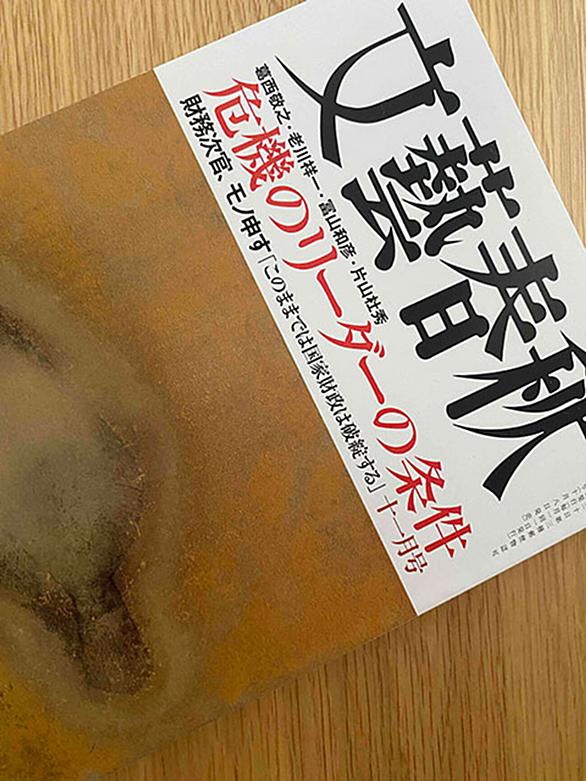 文藝春秋
葛西敬之・老川祥一・冨山和彦・片山杜秀
危機のリーダーの条件
財務次官、モノ申す「このままでは国家財政は破綻する」 十一月号